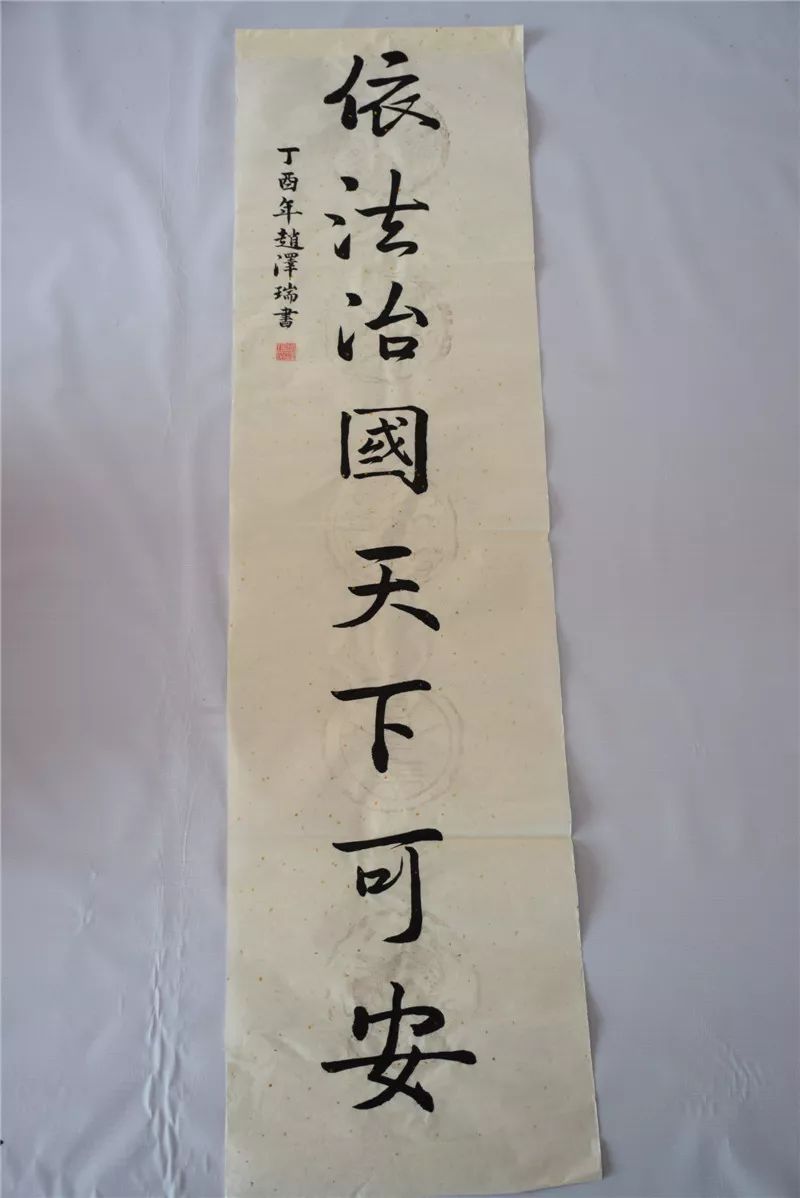 依法治國天下可安
丁酉年趙澤瑞書